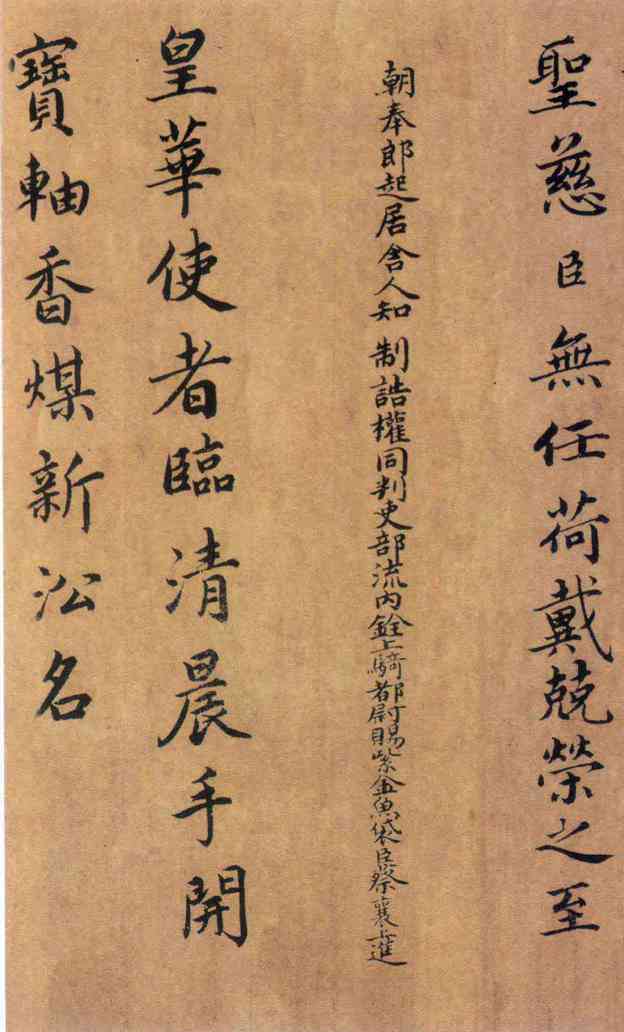 聖慈臣無任荷戴兢榮之至
朝奉郎起居舍人知 制誥權同判吏部流內銓上騎都尉賜紫金魚袋臣蔡襄上進
皇華使者臨清晨手開
寶軸香煤新沿名